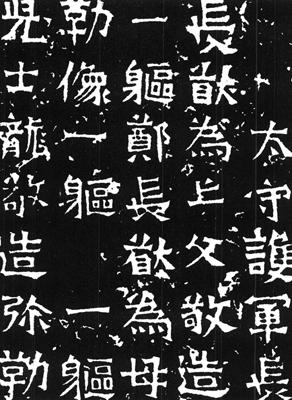 太守護軍長
長猷為亡父敬造
一軀鄭長猷為母
勒像一軀一軀
兒士龍敬造弥勒